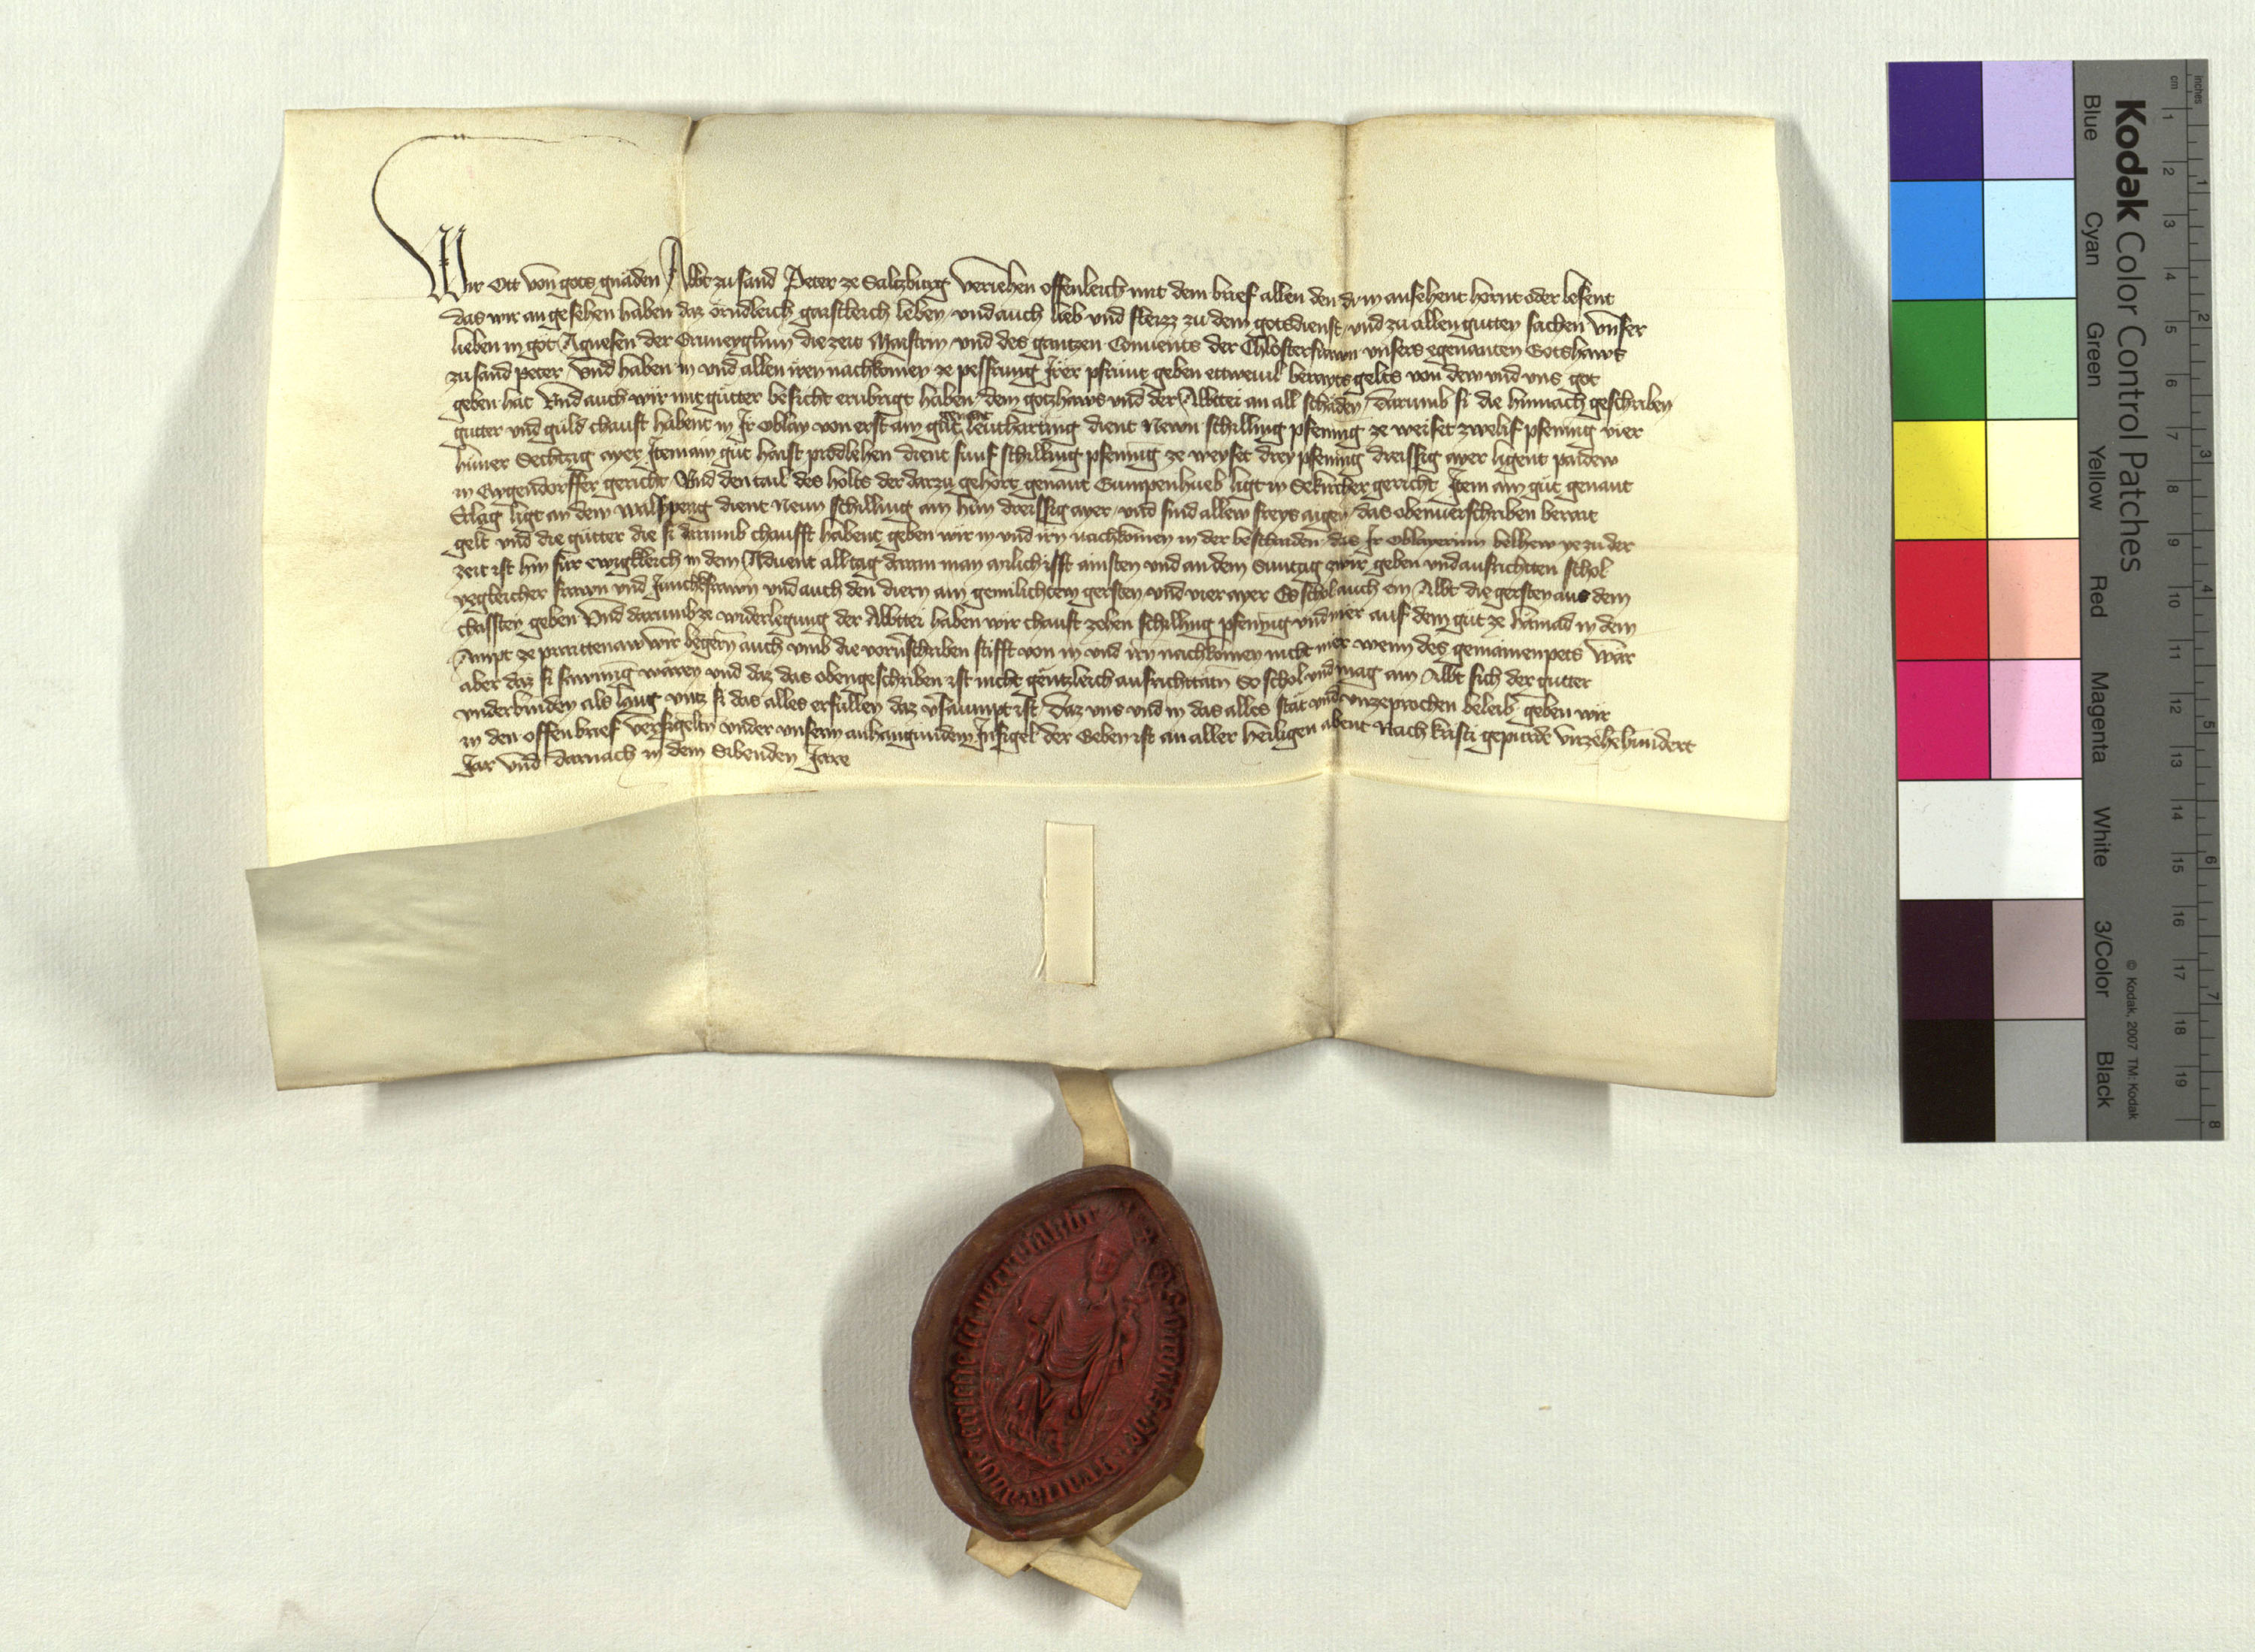 Wir Ott von gots gnaden Abbt zu sand Peter ze Saltzburg veriehen offenleich mit dem brief allen den dy in ansehent hörnt oder lesent
das wir angesehen haben daz örndleich gaistleich leben und auch lieb und fleizz zu dem gotsdienst und zu allen gutten sachen unser
lieben in got Agnesen der die zeit Maistrin und des gantzen Convents der Chlosterfrawn unsers egenanten Gotshaws
zu sand peter Und haben in und allen iren nachkomen ze pessrung Irer pfrünt geben ettwevil berayts gelts von dem und uns got
geben hat Und auch wir mit gutter besicht erubrigt haben dem gotzhaws und der Abbtei an all schaden darumb si die hernach geschriben
gutter und güld chauft habent in Ir Oblay von erst ain güt genant Leutharting dient Newn schilling pfening ze weiset zwelif pfening vier
hüner Sechtzig ayer Item ain güt haist prodlehen dient fünf schilling pfening ze weyset drey pfening dreissig ayer ligent paidew
in Eygendorffer gericht Und den tail des holts der darzu gehört genant Gumpenhueb ligt in Sekircher gericht Item ain güt genant
Erlag ligt an dem walsperg dient Neun schilling ain hün dreissig ayer und sind allew freys aigen das obenverschriben berait
gelt und die gütter die si darumb chaufft habent geben wir in und irn nachkomen in der beschaiden das Ir Oblayerinn belhew ye zu der
zeit ist hin für ewigkleich in dem Advent alltag daran man ainsten und an dem Suntag zwir geben und ausrichtten schol
yegleicher frawn und Junckfrawn und auch den diern ain gersten und vier ayer Es schol auch ein Abbt die gersten aus dem
chassten geben Und darumb ze widerlegung der Abbtei haben wir chauft zehen schilling pfening und vier auf dem güt ze in dem
Ampt ze wir begern auch umb die vorverschriben stifft von in und irn nachkomen nicht mer wenn des gemainen pets Wär
aber daz si sawmig wären und daz das obengeschriben ist nicht gentzleich ausrichttatn So schol und mag ain Abbt sich der gutter
underbinden als lang untz si das alles erfullen daz versaumpt ist Daz uns und in das alles stät und unzeprochen beleib geben wir
in den offen brief versigelten under unserm anhangundem Insigel der Geben ist an aller Heiligen abent Nach kristi gepurde vierzehehundert
Jar und darnach in dem Sibenden Jare
Kodak Color Control Patches
Blue Cyan Green Yellow Red Magenta White 3/Color Black
© Kodak, 2007 TM: Kodak
cm 1 2 3 4 5 6 7 8 9 10 11 12 13 14 15 16 17 18 19
inches 1 2 3 4 5 6 7 8